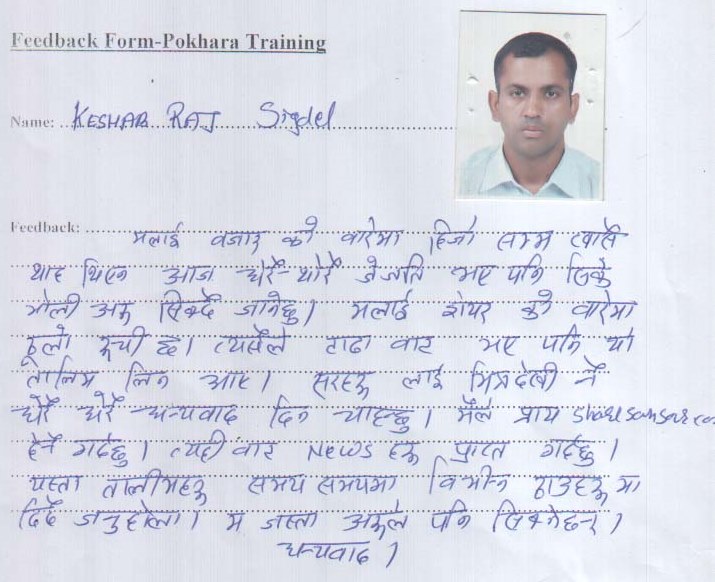 Feedback Form-Pokhara Training
Name: KESHAB RAJ Sigdel
Feedback: मलाई वजार को वारेमा हिजो सम्म खासै
थाह थिएन आज थोरै-थोरै जे जति भए पनि सिके
भोली अरु सिक्दै जानेछु। मलाई शेयर को वारेमा
ठूलो रूची छ। त्यसैले टाढा वाट भए पनि यो
तालिम लिन आए। सरहरू लाई भित्रदेखी नै
धेरै धेरै धन्यवाद दिन चाहन्छु। मैले प्राय sharesansar.co
हेर्ने गर्दछु। त्यही वाट News हरू प्राप्त गर्दछु।
यस्ता तालीमहरू समय समयमा विभीन्न ठाउहरू मा
दिँदै जानुहोला। म जस्ता अरूले पनि सिक्नेछन्।
धन्यवाद।